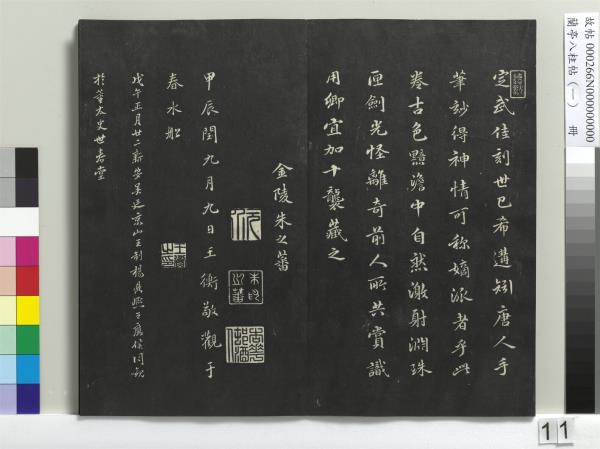 定武佳刻世已希遘矧唐人手
筆妙得神情可称嫡派者乎此
卷古色黯澹中自然激射淵珠
匣劍光怪離奇前人所共賞識
用卿宜加十襲藏之
金陵朱之蕃
朱之蕃
甲辰閏九月九日王衡敬觀于
春水船
王衡之印
戊午正月廿二新安吳廷京山王制楊鼎熙于應侯同觀
於董太史世春堂
故帖 000266N000000000
蘭亭八柱帖(一) 冊
11